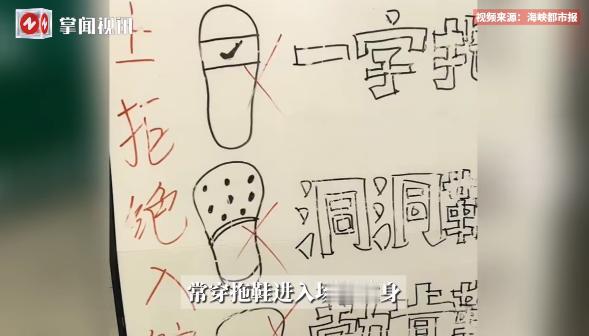 掌闻视讯
视频来源：海峡都市报
上拒绝入
一字拖
洞洞鞋
常穿拖鞋进入
身